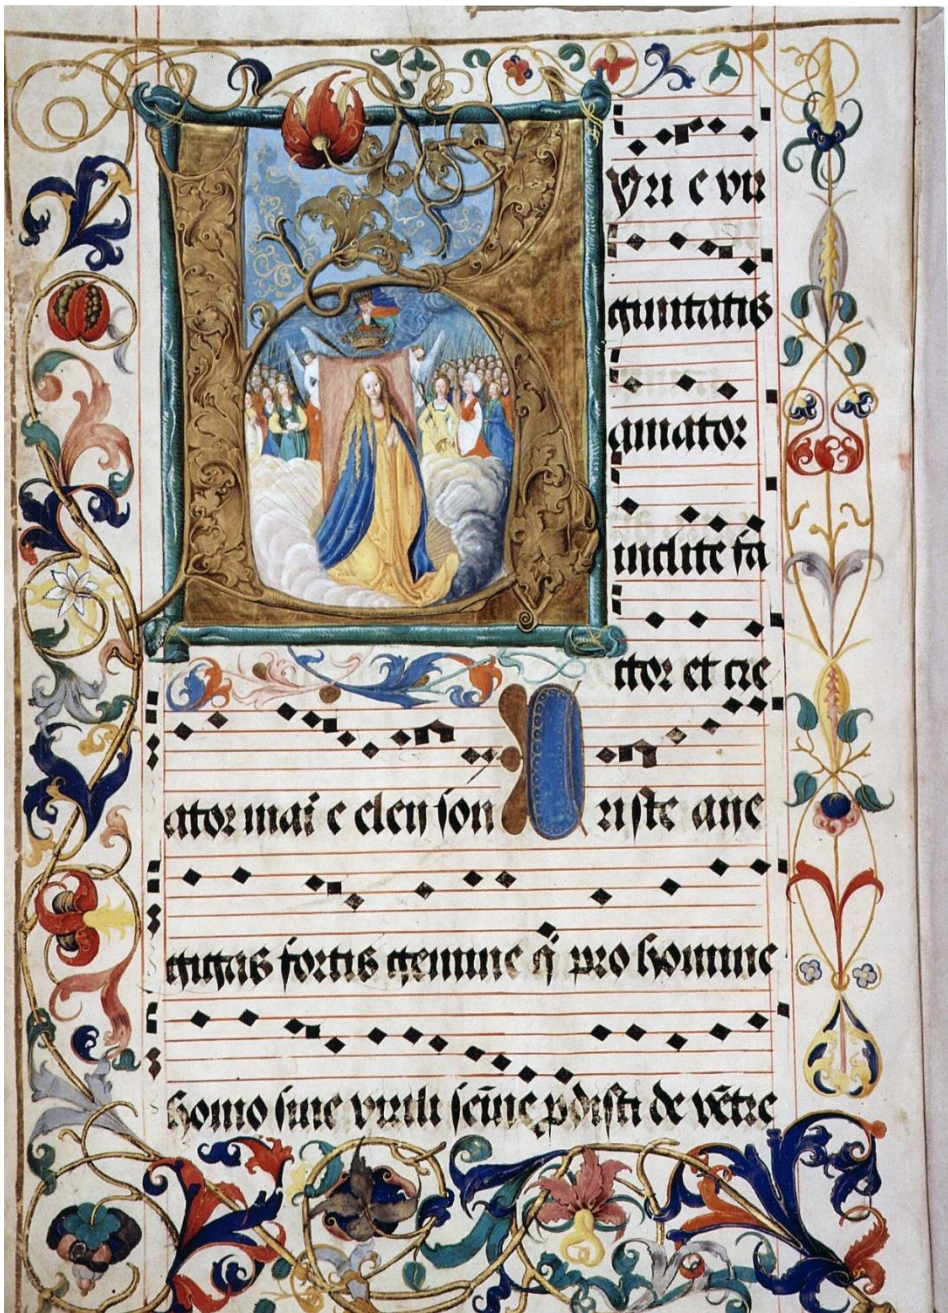 yri e vir
ginitatis
amator
inclite fa
ctor et cre
ator mar̄ e eleyson X riste ane
gigas fortis gemine q̄ pro homine
homo sine virili sēine p̱disti de vētre